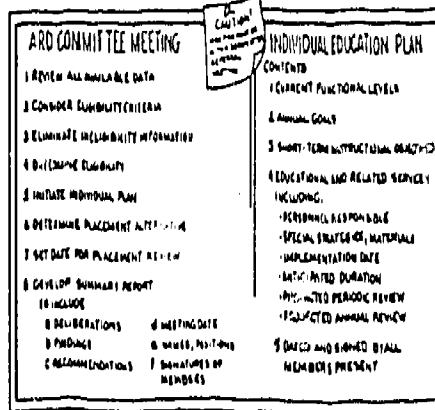 CAUTION!
ARD COMMITTEE MEETING
1 REVIEW ALL AVAILABLE DATA
2 CONSIDER ELIGIBILITY CRITERIA
3 ELIMINATE INELIGIBILITY INFORMATION
4 DETERMINE ELIGIBILITY
5 INITIATE INDIVIDUAL PLAN
6 DETERMINE PLACEMENT ALTERNATIVE
7 SET DATE FOR PLACEMENT REVIEW
8 DEVELOP SUMMARY REPORT
TO INCLUDE
A DELIBERATIONS
B FINDINGS
C RECOMMENDATIONS
D MEETING DATE
E NAMES, POSITIONS
F SIGNATURES OF
MEMBERS
INDIVIDUAL EDUCATION PLAN
CONTENTS
1 CURRENT FUNCTIONAL LEVELS
2 ANNUAL GOALS
3 SHORT-TERM INSTRUCTIONAL OBJECTIVES
4 EDUCATIONAL AND RELATED SERVICES
INCLUDING:
-PERSONNEL RESPONSIBLE
-SPECIAL STRATEGIES, MATERIALS
-IMPLEMENTATION DATE
-ANTICIPATED DURATION
-PROJECTED PERIODIC REVIEW
-PROJECTED ANNUAL REVIEW
5 DATED AND SIGNED BY ALL
MEMBERS PRESENT